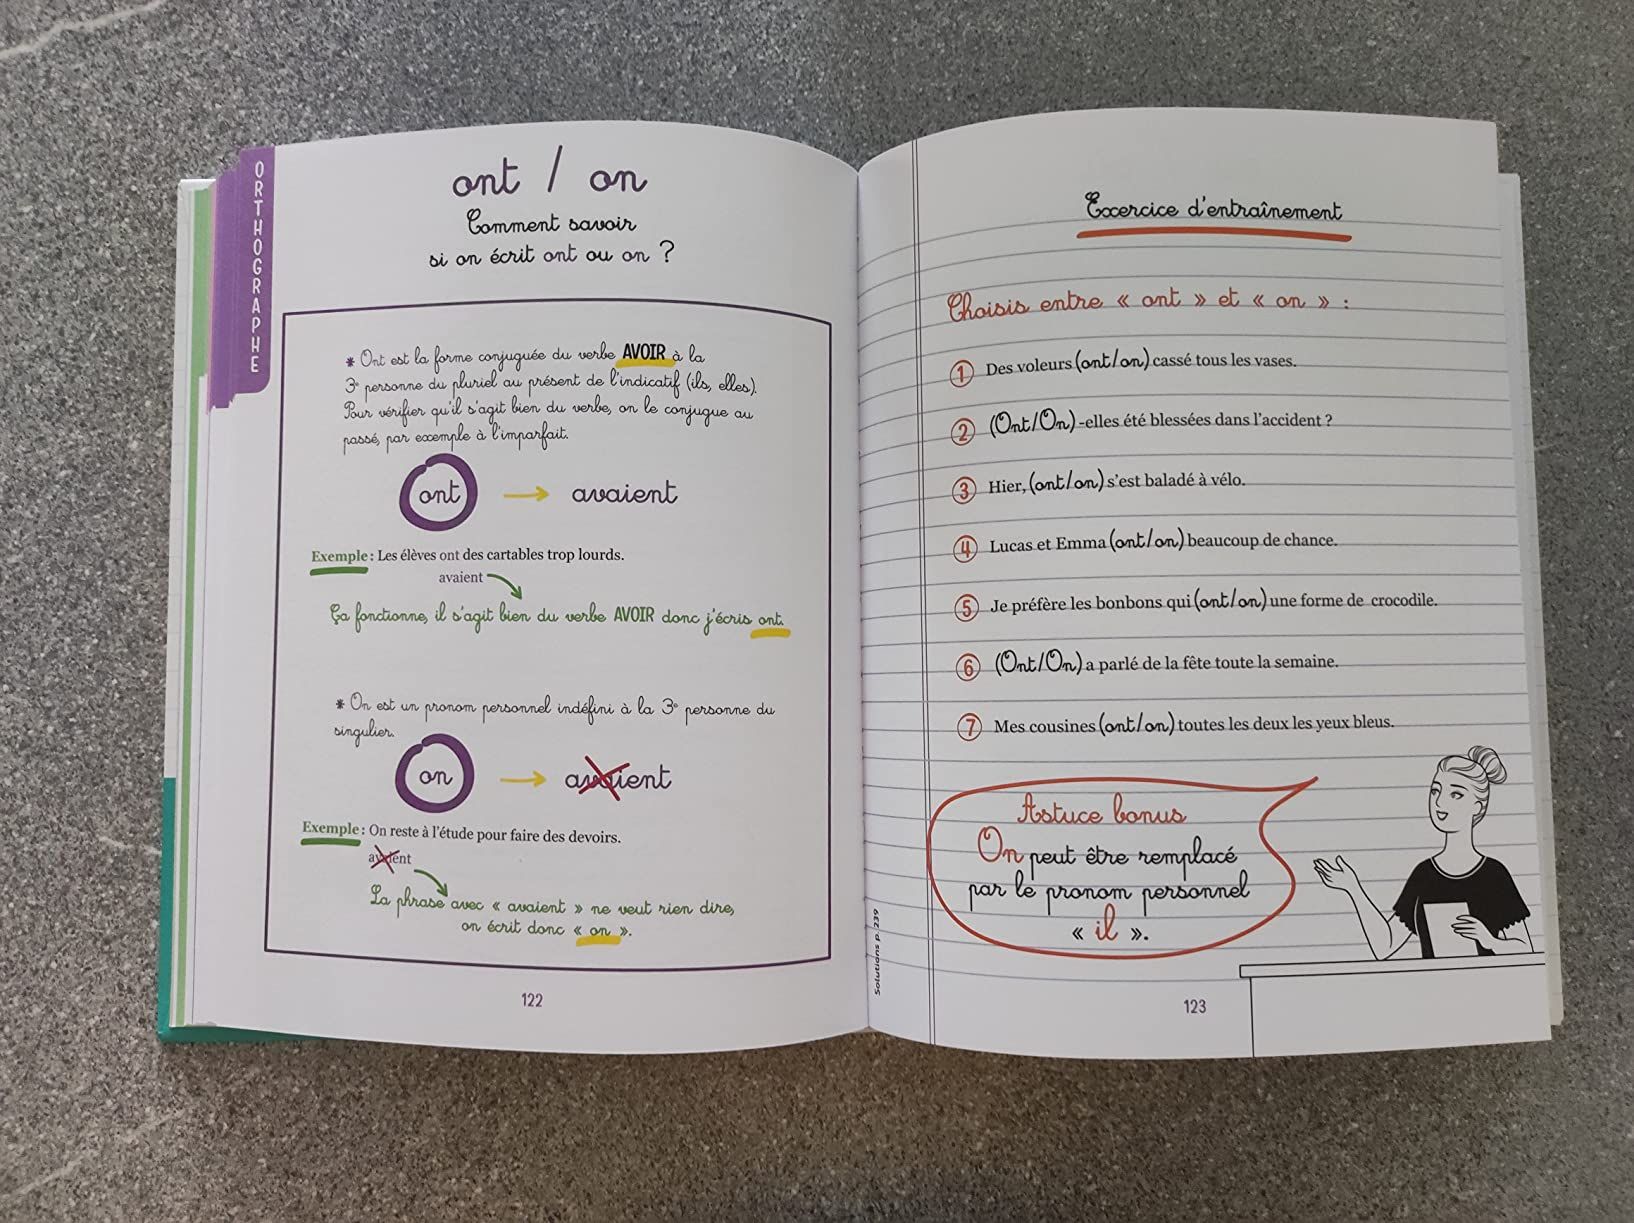 ORTHOGRAPHE
ont / on
Comment savoir
si on écrit ont ou on ?
* Ont est la forme conjuguée du verbe AVOIR à la
3e personne du pluriel au présent de l'indicatif (ils, elles).
Pour vérifier qu'il s'agit bien du verbe, on le conjugue au
passé, par exemple à l'imparfait.
ont → avaient
Exemple : Les élèves ont des cartables trop lourds.
avaient
Ça fonctionne, il s'agit bien du verbe AVOIR donc j'écris ont.
* On est un pronom personnel indéfini à la 3e personne du
singulier.
on → avaient
Exemple : On reste à l'étude pour faire des devoirs.
avaient
La phrase avec « avaient » ne veut rien dire,
on écrit donc « on ».
122
Exercice d'entraînement
Choisis entre « ont » et « on » :
1 Des voleurs (ont/on) cassé tous les vases.
2 (Ont/On)-elles été blessées dans l'accident ?
3 Hier, (ont/on) s'est baladé à vélo.
4 Lucas et Emma (ont/on) beaucoup de chance.
5 Je préfère les bonbons qui (ont/on) une forme de crocodile.
6 (Ont/On) a parlé de la fête toute la semaine.
7 Mes cousines (ont/on) toutes les deux les yeux bleus.
Astuce bonus
On peut être remplacé
par le pronom personnel
« il ».
Solutions p. 239
123